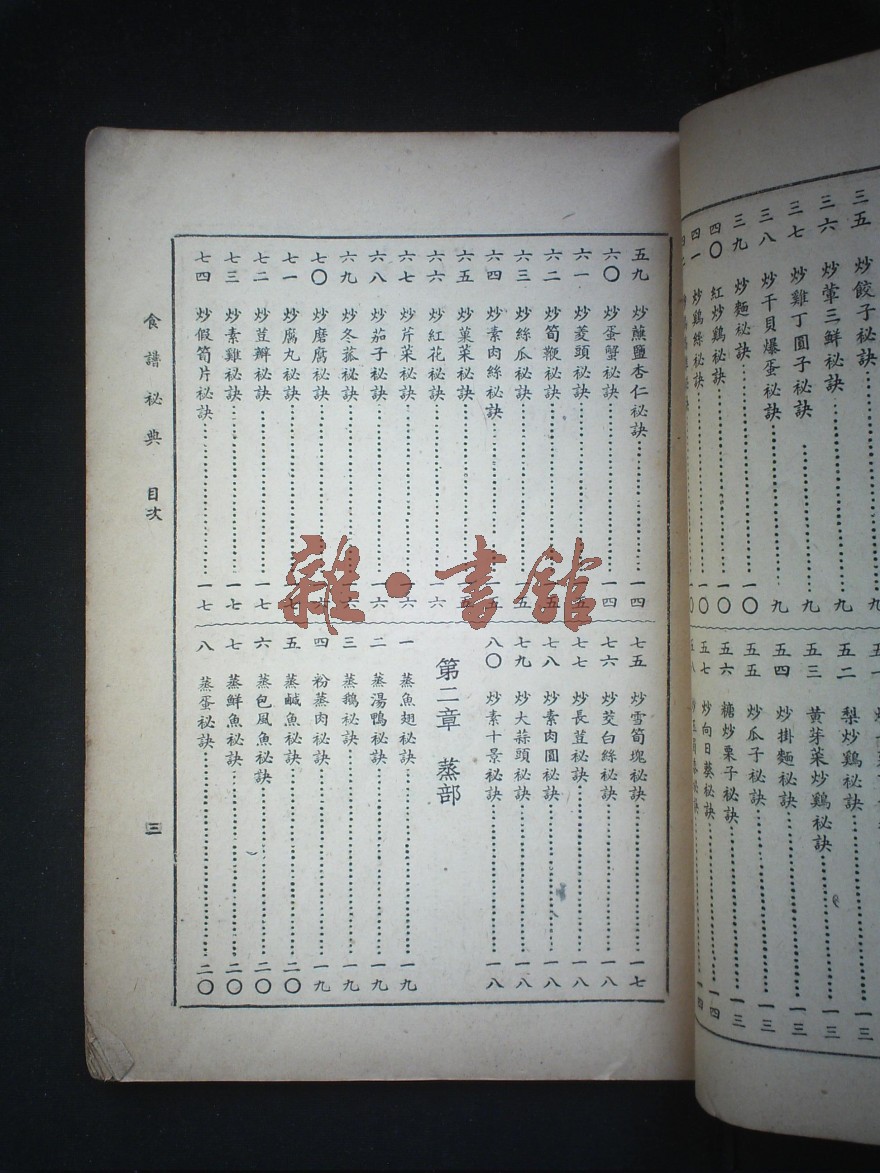 三五 炒餃子秘訣 九
三六 炒葷三鮮秘訣 九
三七 炒雞丁圓子秘訣 九
三八 炒干貝爆蛋秘訣 九
三九 炒麵秘訣 一〇
四〇 紅炒鷄秘訣 一〇
四一 炒鷄絲秘訣 一〇
五一 一三
五二 梨炒鷄秘訣 一三
五三 黃芽菜炒鷄秘訣 一三
五四 炒掛麵秘訣 一三
五五 炒瓜子秘訣 一三
五六 糖炒栗子秘訣 一四
五七 炒向日葵秘訣 四
五九 炒蘸鹽杏仁秘訣 一四
六〇 炒蛋蟹秘訣 一四
六一 炒菱頭秘訣
六二 炒筍鞭秘訣
六三 炒絲瓜秘訣 五
六四 炒素肉絲秘訣 五
六五 炒菓菜秘訣 五
六六 炒紅花秘訣 六
六七 炒芹菜秘訣 一六
六八 炒茄子秘訣 一六
六九 炒冬菰秘訣
七〇 炒磨腐秘訣
七一 炒腐丸秘訣
七二 炒荳瓣秘訣 一七
七三 炒素雞秘訣 一七
七四 炒假筍片秘訣 一七
七五 炒雪筍塊秘訣 一七
七六 炒茭白絲秘訣 一八
七七 炒長荳秘訣 一八
七八 炒素肉圓秘訣 一八
七九 炒大蒜頭秘訣 一八
八〇 炒素十景秘訣 一八
第二章 蒸部
一 蒸魚翅秘訣 一九
二 蒸湯鴨秘訣 一九
三 蒸鵝秘訣 一九
四 粉蒸肉秘訣 一九
五 蒸鹹魚秘訣 二〇
六 蒸包風魚秘訣 二〇
七 蒸鮮魚秘訣 二〇
八 蒸蛋秘訣 二〇
食譜祕典 目次
三
雜·書館